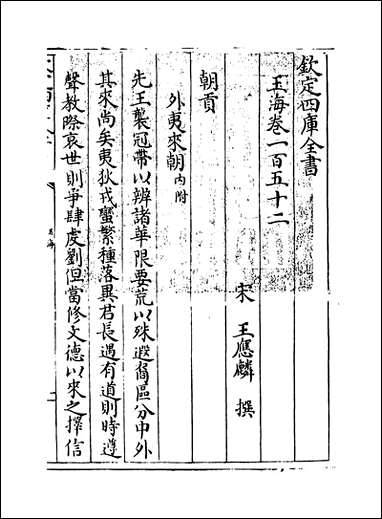 欽定四庫全書
玉海卷一百五十二
宋 王應麟 撰
朝貢
外夷來朝內附
先王襲冠帶以辨諸華限要荒以殊遐裔區分中外
其來尚矣夷狄戎蠻繁種落異君長遇有道則時遵
聲教際衰世則爭肆虔劉但當修文德以來之擇信